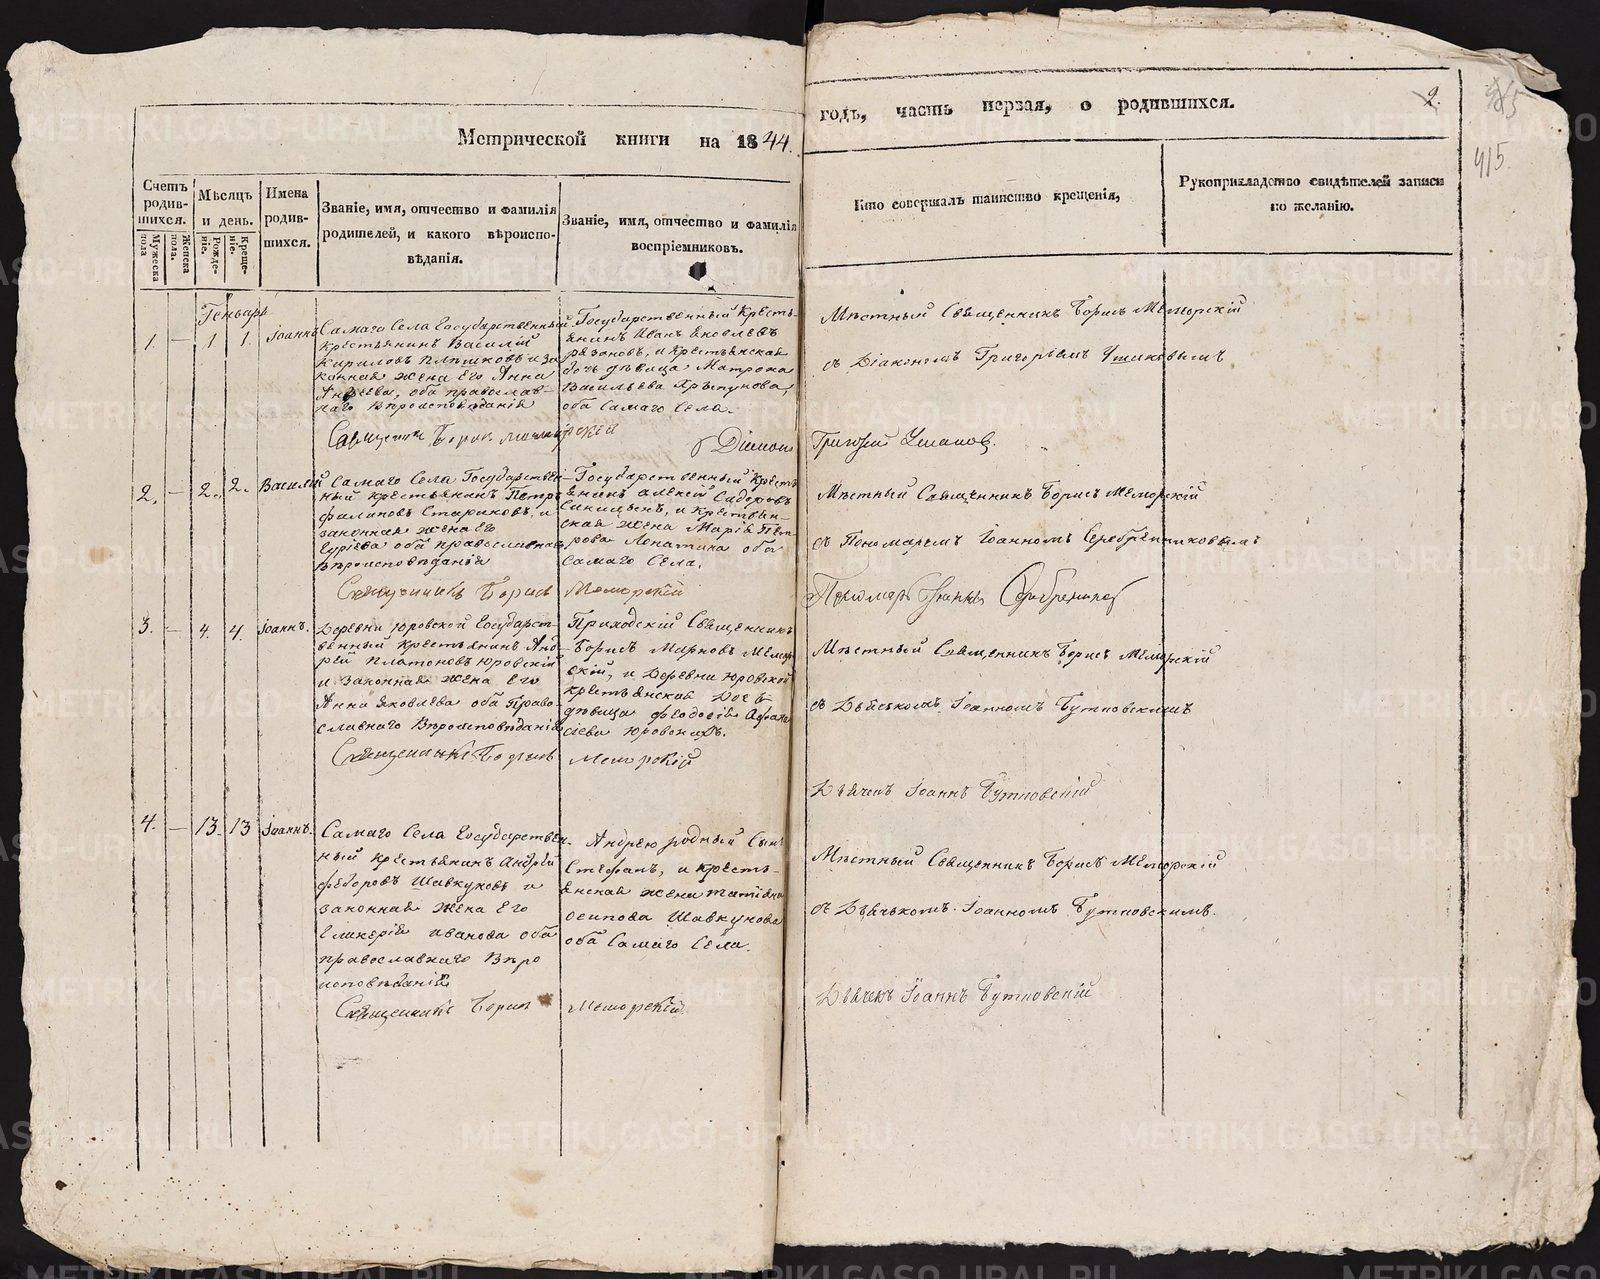 Метрической книги на 1844.
годъ, часть первая, о родившихся.
2.
415.
Счетъ родив-
шихся.
Мужеска пола
Женска пола.
Мѣсяцъ
и день.
Рожде-
ніе.
Креще-
ніе.
Имена
родив-
шихся.
Званіе, имя, отчество и фамилія
родителей, и какого вѣроиспо-
вѣданія.
Званіе, имя, отчество и фамилія
воспріемниковъ.
Кто совершалъ таинство крещенія,
Рукоприкладство свидѣтелей записи
по желанію.
Генварь
1. — 1 1. Іоаннъ
Самаго Села Государственный
крестьянинъ Василій
Кириловъ Плѣшковъ и за
конная жена Его Анна
оба православ-
наго Вѣроисповѣданія
Государственный Кресть-
янинъ Иванъ Яковлевъ
и Крестьянская
дочь дѣвица Матрона
Васильева
оба Самаго Села.
Мѣстный Священникъ Борисъ Меморскій
съ Діакономъ Григоріемъ Ушаковымъ
Священникъ Борисъ Меморскій
Діаконъ Григорій Ушаковъ.
2. — 2. 2. Василій
Самаго Села Государствен-
ный крестьянинъ Петръ
Филиповъ Стариковъ и
законная жена Его
оба православнаго
Вѣроисповѣданія
Государственный Кресть
янинъ Алексѣй Сидоровъ
Синицынъ, и крестьян-
ская жена Марія Пет
рова Лопатина оба
Самаго Села.
Мѣстный Священникъ Борисъ Меморскій
съ Пономаремъ Іоанномъ Серебренниковымъ
Священникъ Борисъ Меморскій
Пономарь Іоаннъ
3. — 4. 4. Іоаннъ.
Деревни Юровской Государст-
венный Крестьянинъ Анд
рей Платоновъ Юровскій
и законная жена Его
Анна Яковлева оба Право-
славнаго Вѣроисповѣданія
Приходскій Священникъ
Борисъ Марковъ Мемор
скій, и Деревни Юровской
крестьянская дочь
дѣвица Феодосія Афана
сіева Юровскихъ.
Мѣстный Священникъ Борисъ Меморскій
съ Дьячькомъ Іоанномъ Бутповскимъ
Священникъ Борисъ Меморскій
Дьячекъ Іоаннъ Бутповскій
4. — 13. 13 Іоаннъ.
Самаго Села Государствен-
ный крестьянинъ Андрей
Федоровъ Шавкуновъ и
законная жена Его
Гликерія Иванова оба
православнаго Вѣро
исповѣданія
Андрею родный Сынъ
Стефанъ, и кресть-
янская жена Татіяна
Осипова Шавкунова
оба Самаго Села.
Мѣстный Священникъ Борисъ Меморскій
съ Дьячькомъ Іоанномъ Бутповскимъ.
Священникъ Борисъ Меморскій
Дьячекъ Іоаннъ Бутповскій
METRIKI.GASO-URAL.RU